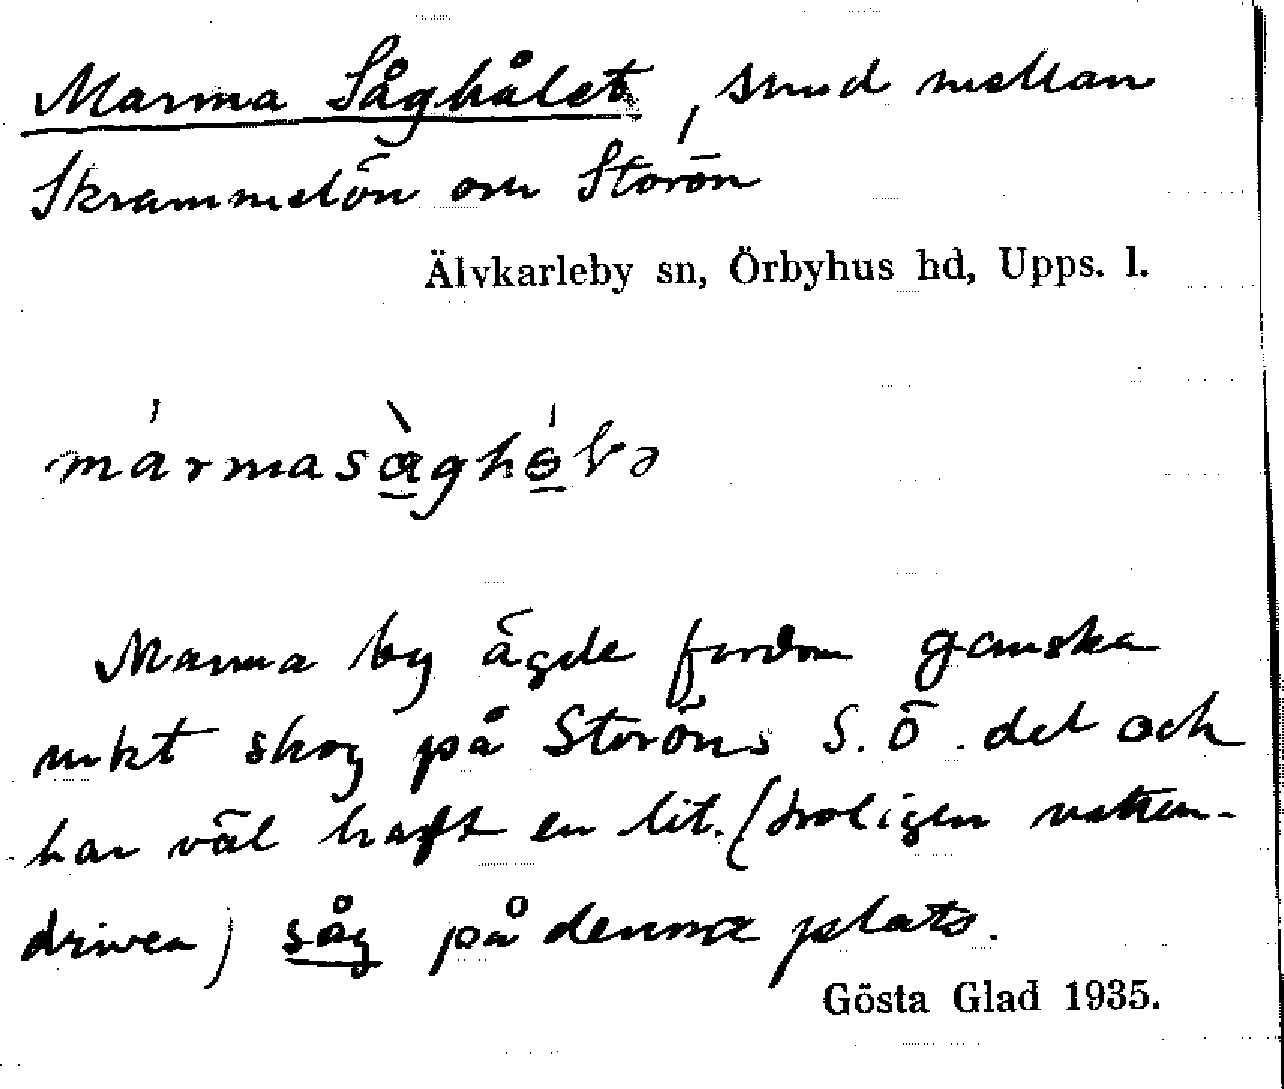 Marma Såghålet, sund mellan
Skrammelön om Storön
Älvkarleby sn, Örbyhus hd, Upps. l.
Marma by ägde fordom ganska
mkt skog på Storöns S.Ö. del och
har väl haft en lit. (troligen vatten-
driven) såg på denna plats.
Gösta Glad 1935.